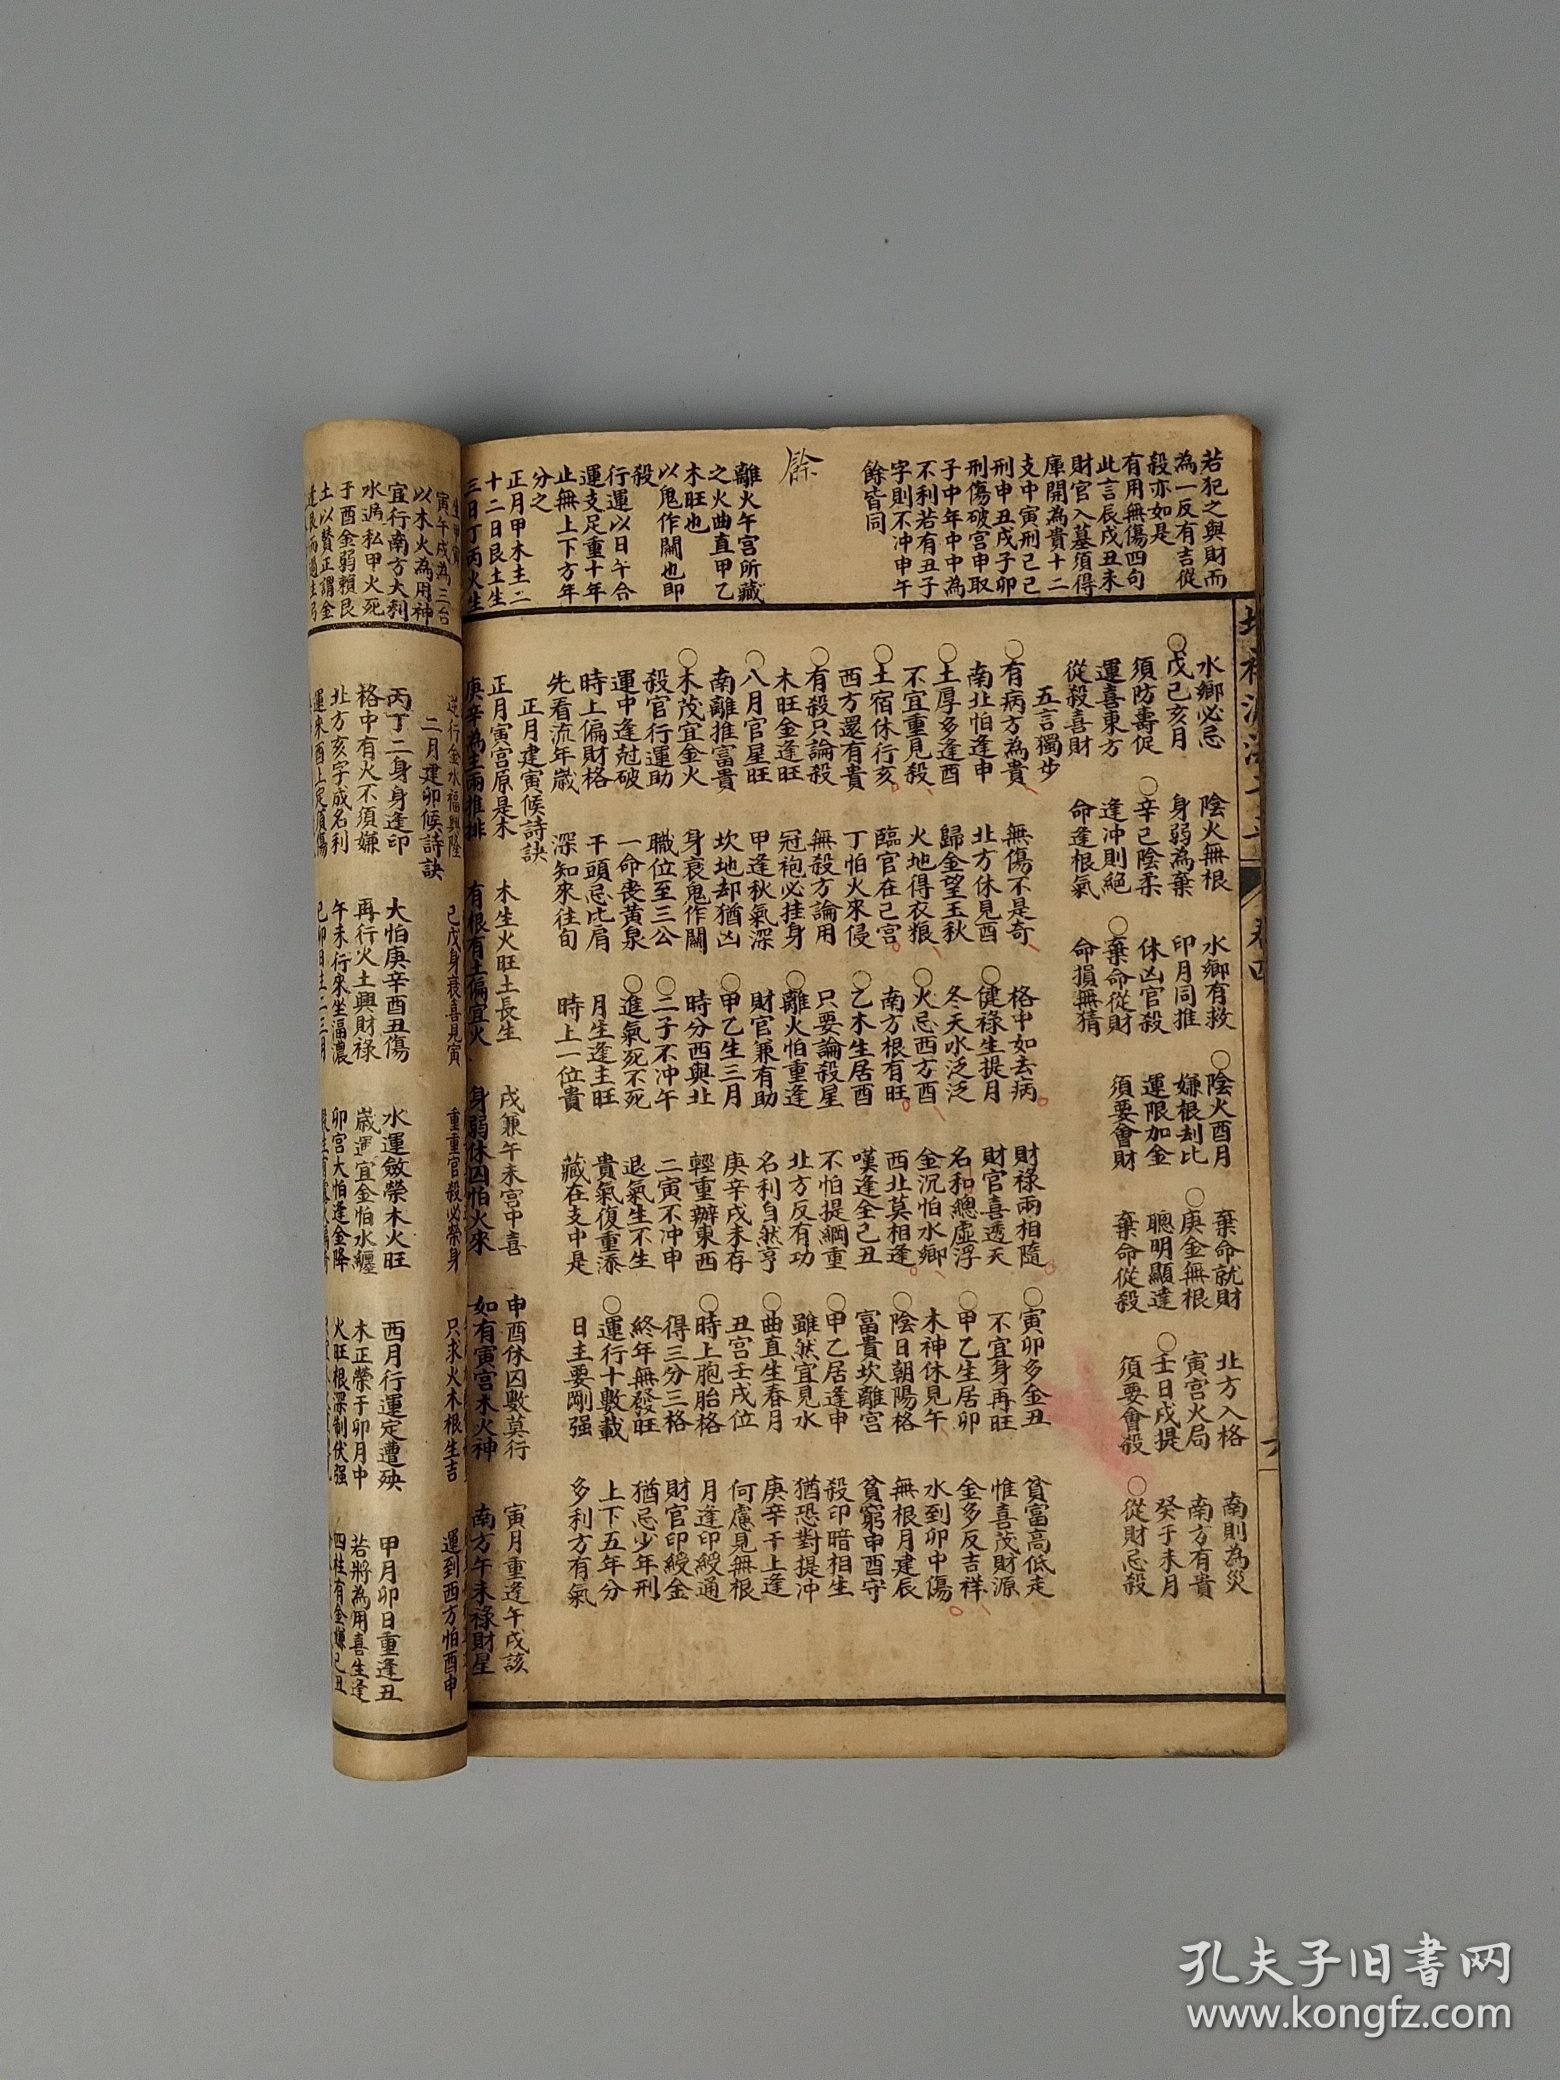 若犯之與財而
為一反有吉從
殺亦如是
有用無傷四句
此言辰戌丑未
財官入墓須得
庫開為貴十二
支中寅刑己己
刑申丑戌子卯
刑傷破宮申取
子中年中中為
不利若有丑子
字則不冲申午
餘皆同
餘
離火午宮所藏
之火曲直甲乙
木旺也
以鬼作關也即
殺
行運以日午合
運支足重十年
止無上下方年
分之
正月甲木主二
十二日艮土生
三日丁丙火生
卷四
水鄉必忌 陰火無根 水鄉有救 ○陰火酉月 棄命就財 北方入格 南則為災
○戊己亥月 身弱為棄 卯月同推 嫌根刦比 ○庚金無根 寅宮火局 南方有貴
須防壽促 ○辛己陰柔 休凶官殺 運限加金 聰明顯達 ○壬日戌提 癸于未月
運喜東方 逢冲則絕 ○棄命從財 須要會財 棄命從殺 須要會殺 ○從財忌殺
從殺喜財 命逢根氣 命損無猜
五言獨步
○有病方為貴 無傷不是奇 格中如去病 財祿兩相隨 ○寅卯多金丑 貧富高低走
南北怕逢申 北方休見酉 ○健祿生提月 財官喜透天 不宜身再旺 惟喜茂財源
○土厚多逢酉 歸金望玉秋 冬天水泛泛 名和總虛浮 ○甲乙生居卯 金多反吉祥
不宜重見殺 火地得衣粮 ○火忌西方酉 金沉怕水鄉 木神休見午 水到卯中傷
○土宿休行亥 臨官在己宮 南方根有旺 西北莫相逢 ○陰日朝陽格 無根月建辰
西方還有貴 丁怕火來侵 ○乙木生居酉 嘆逢全己丑 富貴坎離宮 ○貧窮申酉守
○有殺只論殺 無殺方論用 只要論殺星 不怕提綱重 ○甲乙居逢申 殺印暗相生
木旺金逢旺 冠袍必挂身 ○離火怕重逢 北方反有功 雖然宜見水 猶恐對提冲
○八月官星旺 甲逢秋氣深 財官兼有助 名利自然亨 ○曲直生春月 庚辛干上逢
南離推富貴 坎地却猶凶 ○甲乙生三月 庚辛戌未存 丑宮壬戌位 何慮見無根
○木茂宜金火 身衰鬼作關 時分西與北 輕重辦東西 ○時上胞胎格 月逢印綬通
殺官行運助 職位至三公 ○二子不冲午 二寅不冲申 得三分三格 財官印綬金
運中逢尅破 一命喪黃泉 ○進氣死不死 退氣生不生 終年無發旺 猶忌少年刑
時上偏財格 干頭忌比肩 月生逢主旺 貴氣復重添 ○運行十數載 上下五年分
先看流年歲 深知來往旬 時上一位貴 藏在支中是 日主要剛强 多利方有氣
正月建寅候詩訣
正月寅宮原是木 木生火旺土長生 戌兼午未宮中喜 申酉休囚數莫行 寅月重逢午戌該
庚辛為主兩推排 有根有土偏宜火 身弱休囚怕火來 如有寅宮木火神 南方午未祿財星
寅午戌為三台
以木火為用神
宜行南方大利
水為私甲火死
于酉金弱賴艮
土以贊正謂金
逆行金水福興隆 己戊身衰喜見寅 重重官殺必榮身 只求火木根生吉 運到西方怕酉申
二月建卯候詩訣
丙丁二身身逢印 大怕庚辛酉丑傷 水運斂榮木火旺 西月行運定遭殃 甲月卯日重逢丑
格中有火不須嫌 再行火土興財祿 歲運宜金怕水纏 木正榮于卯月中 若將為用喜生逢
北方亥字成名利 午未行來坐福濃 卯宮大怕逢金降 火旺根深制伏强 四柱有金嫌己丑
孔夫子旧书网
www.kongfz.com